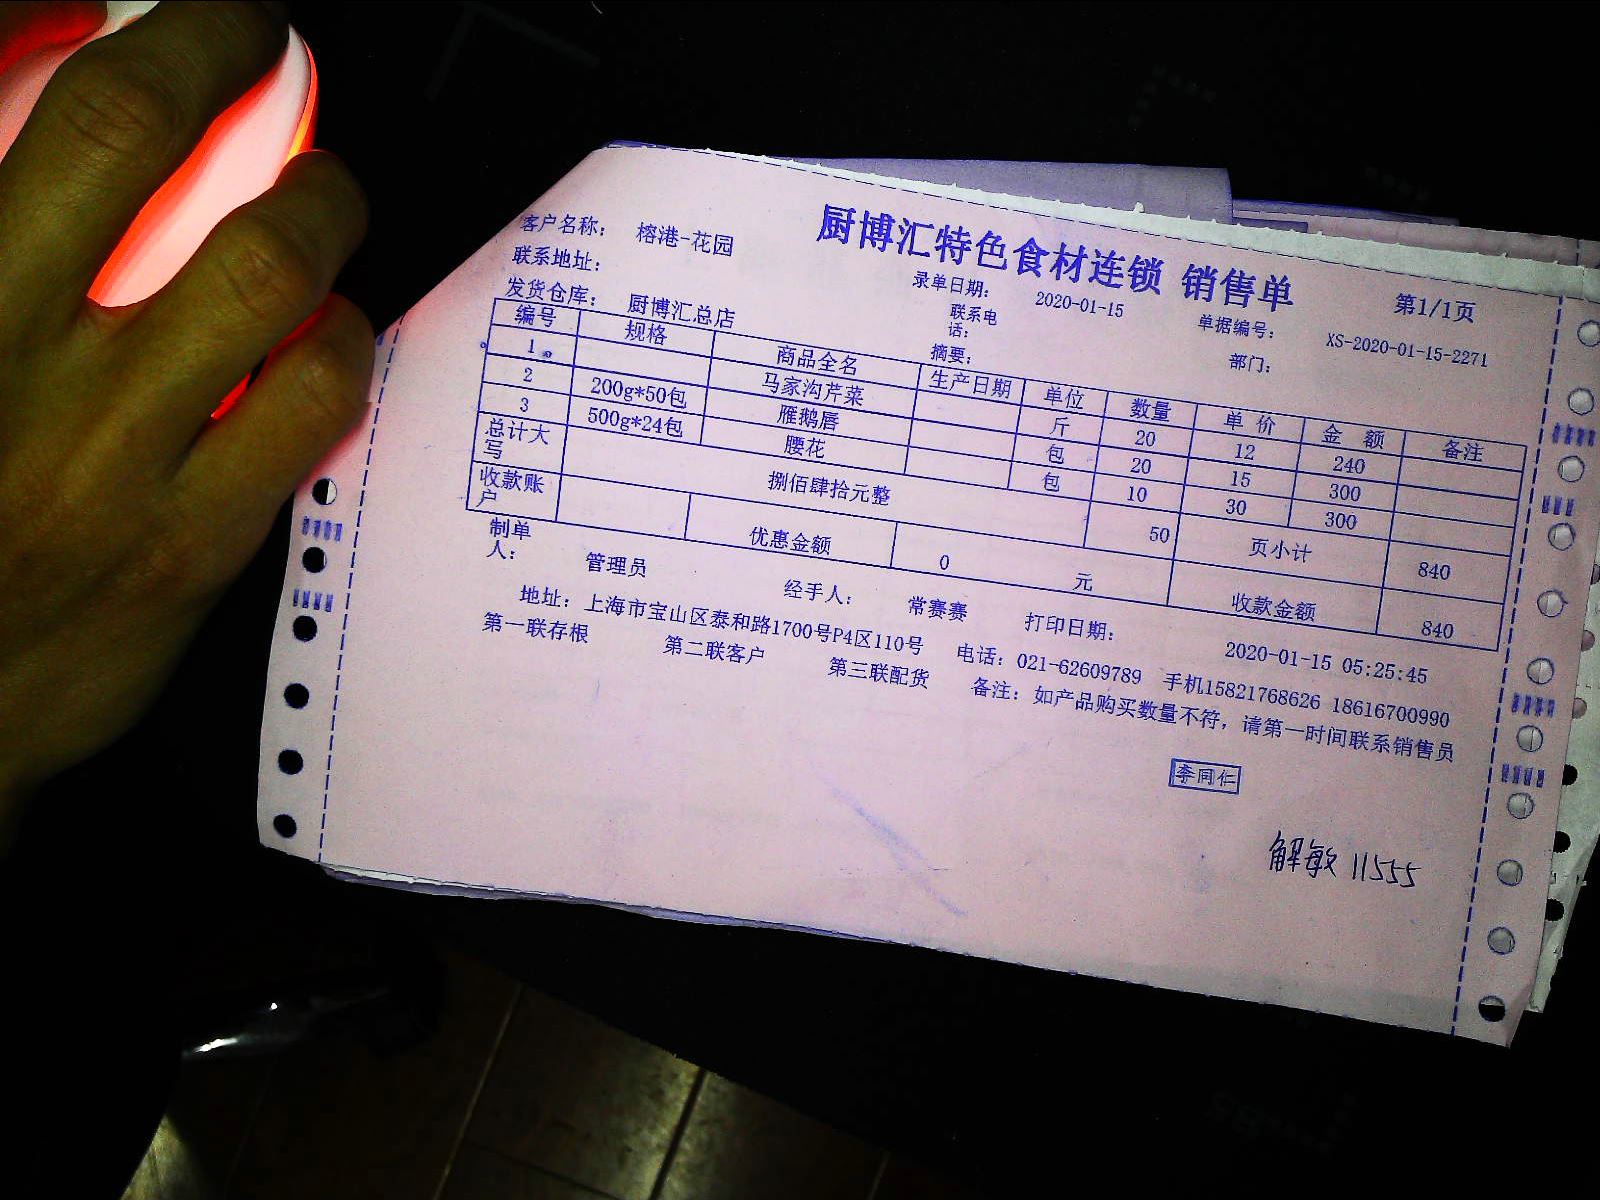 厨博汇特色食材连锁 销售单
第1/1页
客户名称： 榕港-花园
录单日期： 2020-01-15
单据编号： XS-2020-01-15-2271
联系地址：
联系电话：
部门：
发货仓库： 厨博汇总店
摘要：
编号 规格 商品全名 生产日期 单位 数量 单 价 金 额 备注
1 马家沟芹菜 斤 20 12 240
2 200g*50包 雁鹅唇 包 20 15 300
3 500g*24包 腰花 包 10 30 300
总计大写 捌佰肆拾元整 50 页小计 840
收款账户 优惠金额 0 元 收款金额 840
制单人： 管理员 经手人： 常赛赛 打印日期： 2020-01-15 05:25:45
地址：上海市宝山区泰和路1700号P4区110号 电话：021-62609789 手机15821768626 18616700990
第一联存根 第二联客户 第三联配货 备注：如产品购买数量不符，请第一时间联系销售员
李同仁
解敏 11555